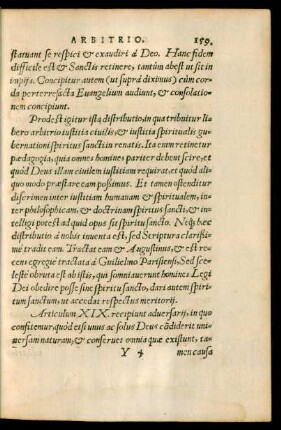 ARBITRIO. 159.
statuant se respici & exaudiri à Deo. Hanc fidem
difficile est & Sanctis retinere, tantùm abest ut sit in
impijs. Concipitur autem (ut suprà diximus) cùm cor-
da perterrefacta Euangelium audiunt, & consolatio-
nem concipiunt.
Prodest igitur ista distributio, in qua tribuitur li-
bero arbitrio iustitia ciuilis, & iustitia spiritualis gu-
bernationi spiritus sancti in renatis. Ita enim retinetur
pædagogia, quia omnes homines pariter debent scire, et
quòd Deus illam ciuilem iustitiam requirat, et quòd ali-
quo modo præstare eam possimus. Et tamen ostenditur
discrimen inter iustitiam humanam & spiritualem, in-
ter philosophicam, & doctrinam spiritus sancti, & in-
telligi potest ad quid opus sit spiritu sancto. Neq; hæc
distributio à nobis inuenta est, sed Scriptura clarissi-
mè tradit eam. Tractat eam & Augustinus, & est re-
cens egregiè tractata à Guilielmo Parisiensi, Sed sce-
lestè obruta est ab istis, qui somniauerunt homines Legi
Dei obedire posse sine spiritu sancto, dari autem spiri-
tum sanctum, ut accedat respectus meritorij.
Articulum XIX. recipiunt aduersarij, in quo
confitemur, quòd etsi unus ac solus Deus cōdiderit uni-
uersam naturam, & conseruet omnia quæ existunt, ta-
Y 4 men causa